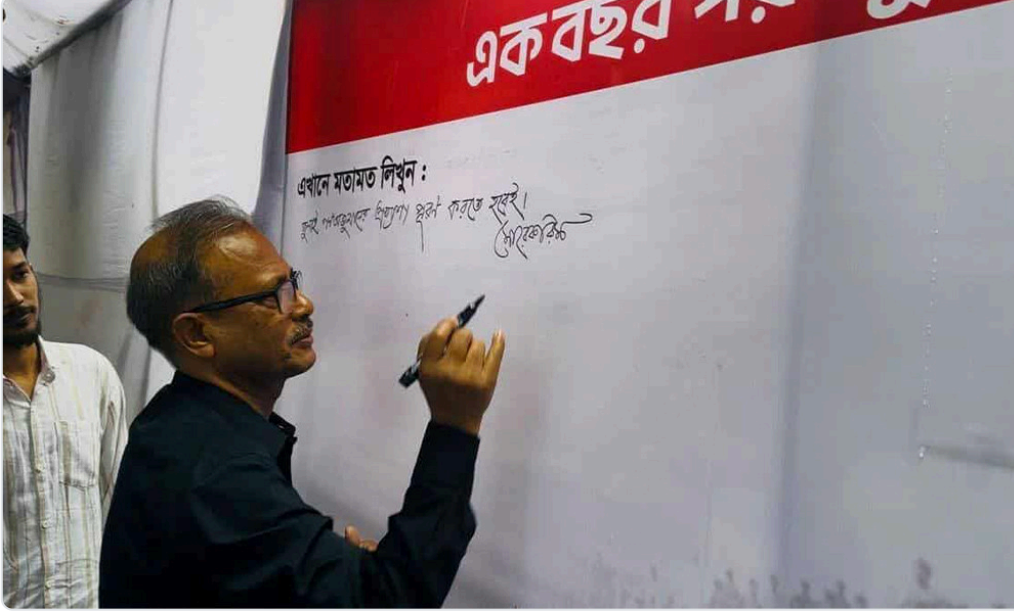 এক বছর পর
এখানে মতামত লিখুন :
জুলাই গণঅভ্যুত্থানের প্রত্যাশা পূরণ করতে হবেই।